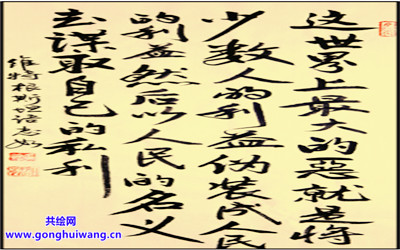 这世界上最大的恶就是将
少数人的利益伪装成人民
的利益然后以人民的名义
去谋取自己的私利
维特根斯坦语志
共绘网
www.gonghuiwang.cn